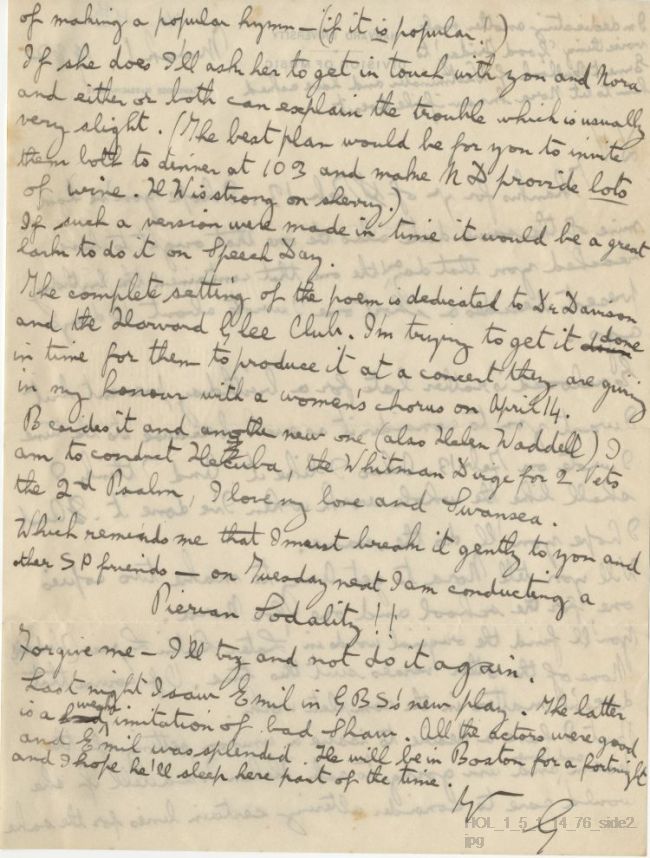 of making a popular hymn — (if it is popular!)
If she does I'll ask her to get in touch with you and Nora
and either or both can explain the trouble which is usually
very slight. (The best plan would be for you to invite
them both to dinner at 103 and make ND provide lots
of wine. HW is strong on sherry.)
If such a version were made in time it would be a great
lark to do it on Speech Day.
The complete setting of the poem is dedicated to Dr Davison
and the Harvard Glee Club. I'm trying to get it done
in time for them to produce it at a concert they are giving
in my honour with a women's chorus on April 14.
Besides it and another new one (also Helen Waddell) I
am to conduct Hecuba, the Whitman Dirge for 2 Vets
the 2nd Psalm, I love my love and Swansea.
Which reminds me that I must break it gently to you and
other SP friends — on Tuesday next I am conducting a
Pierian Sodality!!
Forgive me — I'll try and not do it again.
Last night I saw Emil in GBS's new play. The latter
is a imitation of bad Shaw. All the actors were good
and Emil was splendid. He will be in Boston for a fortnight
and I hope he'll sleep here part of the time.
G
HOL_1_5_1_14_76_side2.
jpg